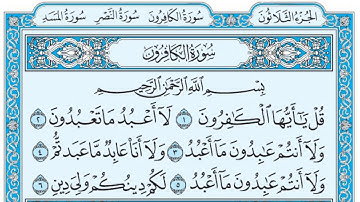 الجزء الثلاثون سورة الكافرون سورة النصر سورة المسد
سورة الكافرون
بِسْمِ اللَّهِ الرَّحْمَٰنِ الرَّحِيمِ
قُلْ يَا أَيُّهَا الْكَافِرُونَ ١ لَا أَعْبُدُ مَا تَعْبُدُونَ ٢
وَلَا أَنتُمْ عَابِدُونَ مَا أَعْبُدُ ٣ وَلَا أَنَا عَابِدٌ مَّا عَبَدتُّمْ ٤
وَلَا أَنتُمْ عَابِدُونَ مَا أَعْبُدُ ٥ لَكُمْ دِينُكُمْ وَلِيَ دِينِ ٦